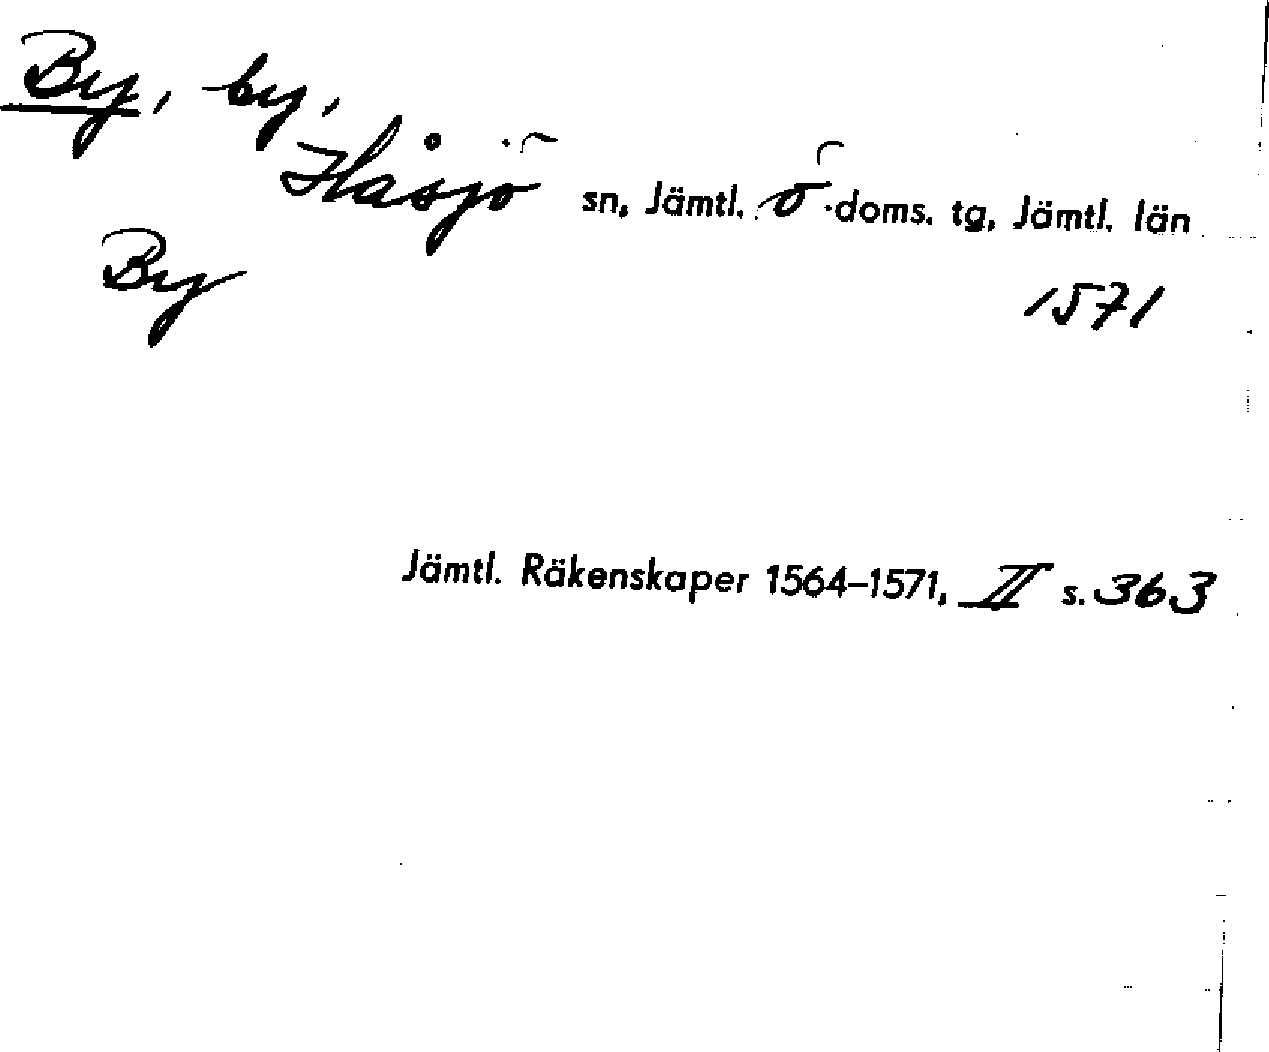 By, by,
Håsjö sn, Jämtl. ö.doms. tg, Jämtl. län
By 1571
Jämtl. Räkenskaper 1564–1571, II s. 363